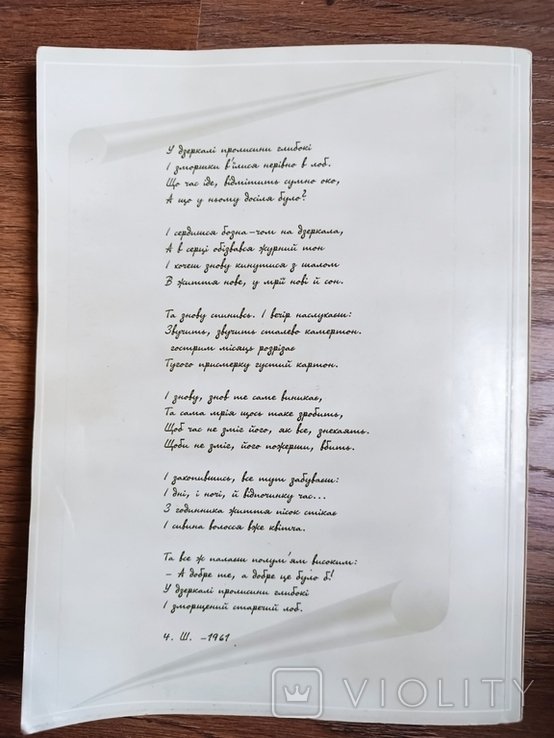 У дзеркалі пролисини глибокі
І зморшки в'їлися нерівно в лоб.
Що час іде, відмітить сумно око,
А що у ньому досіля було?
І сердишся бозна-чом на дзеркала,
А в серці обізвався журний тон
І хочеш знову кинутися з шалом
В життя нове, у мрії нові й сон.
Та знову спинивсь. І вечір наслухаєш:
Звучить, звучить сталево камертон.
гострим місяць розрізає
Тугого присмерку густий картон.
І знову, знов те саме виникає,
Та сама мрія щось таке зробить,
Щоб час не зміг його, як все, знехаять.
Щоби не зміг, його пожерши, вбить.
І захопившись, все тут забуваєш:
І дні, і ночі, й відпочинку час...
З годинника життя пісок стікає
І сивина волосся вже квітча.
Та все ж палаєш полум'ям високим:
– А добре те, а добре це було б!
У дзеркалі пролисини глибокі
І зморщений старечий лоб.
Ч. Ш. –1961
VIOLITY